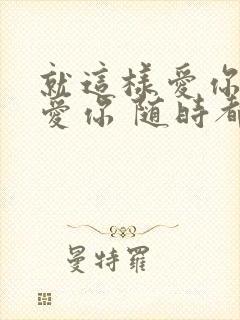 就這樣愛你
愛你 隨時都
曼特羅